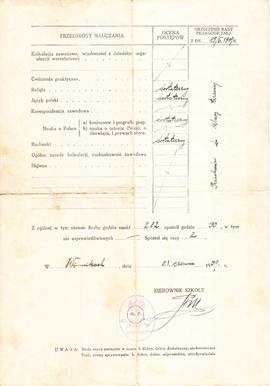 PRZEDMIOTY NAUCZANIA
OCENA POSTĘPÓW
ORZECZENIE RADY PEDAGOGICZNEJ
Z DN.
Kalkulacja zawodowa, wiadomości z dziedziny orga-
nizacji warsztatowej
Ćwiczenia praktyczne
Religia
dostateczny
Język polski
dostateczny
Korespondencja zawodowa
Nauka o Polsce
a) krajoznaw. i geografi. gosp.
b) nauka o ustroju Polski, o
obowiąz. i prawach obyw.
dostateczny
Rachunki
dostateczny
Ogólne zasady kalkulacji, rachunkowość zawodowa
Higiena
Z ogólnej w tym okresie liczby godzin nauki 282 opuścił godzin 90, w tym
nie usprawiedliwionych Spóźnił się razy 2
W dnia 21 czerwca 19
KIEROWNIK SZKOŁY
UWAGA: Skala oceny postępów w nauce: b. dobry, dobry, dostateczny, niedostateczny
Skala oceny sprawowania: b. dobre, dobre, odpowiednie, nieodpowiednie